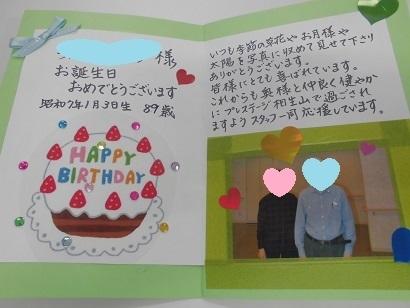 様
お誕生日
おめでとうございます
昭和7年1月3日生 89歳
HAPPY
BIRTHDAY
いつも季節の草花やお月様や
太陽を写真に収めて見せて下さり
ありがとうございます。
皆様にとても喜ばれています。
これからも奥様と仲良く健やか
にプレステージ相生山で過ごされ
ますようスタッフ一同応援しています。